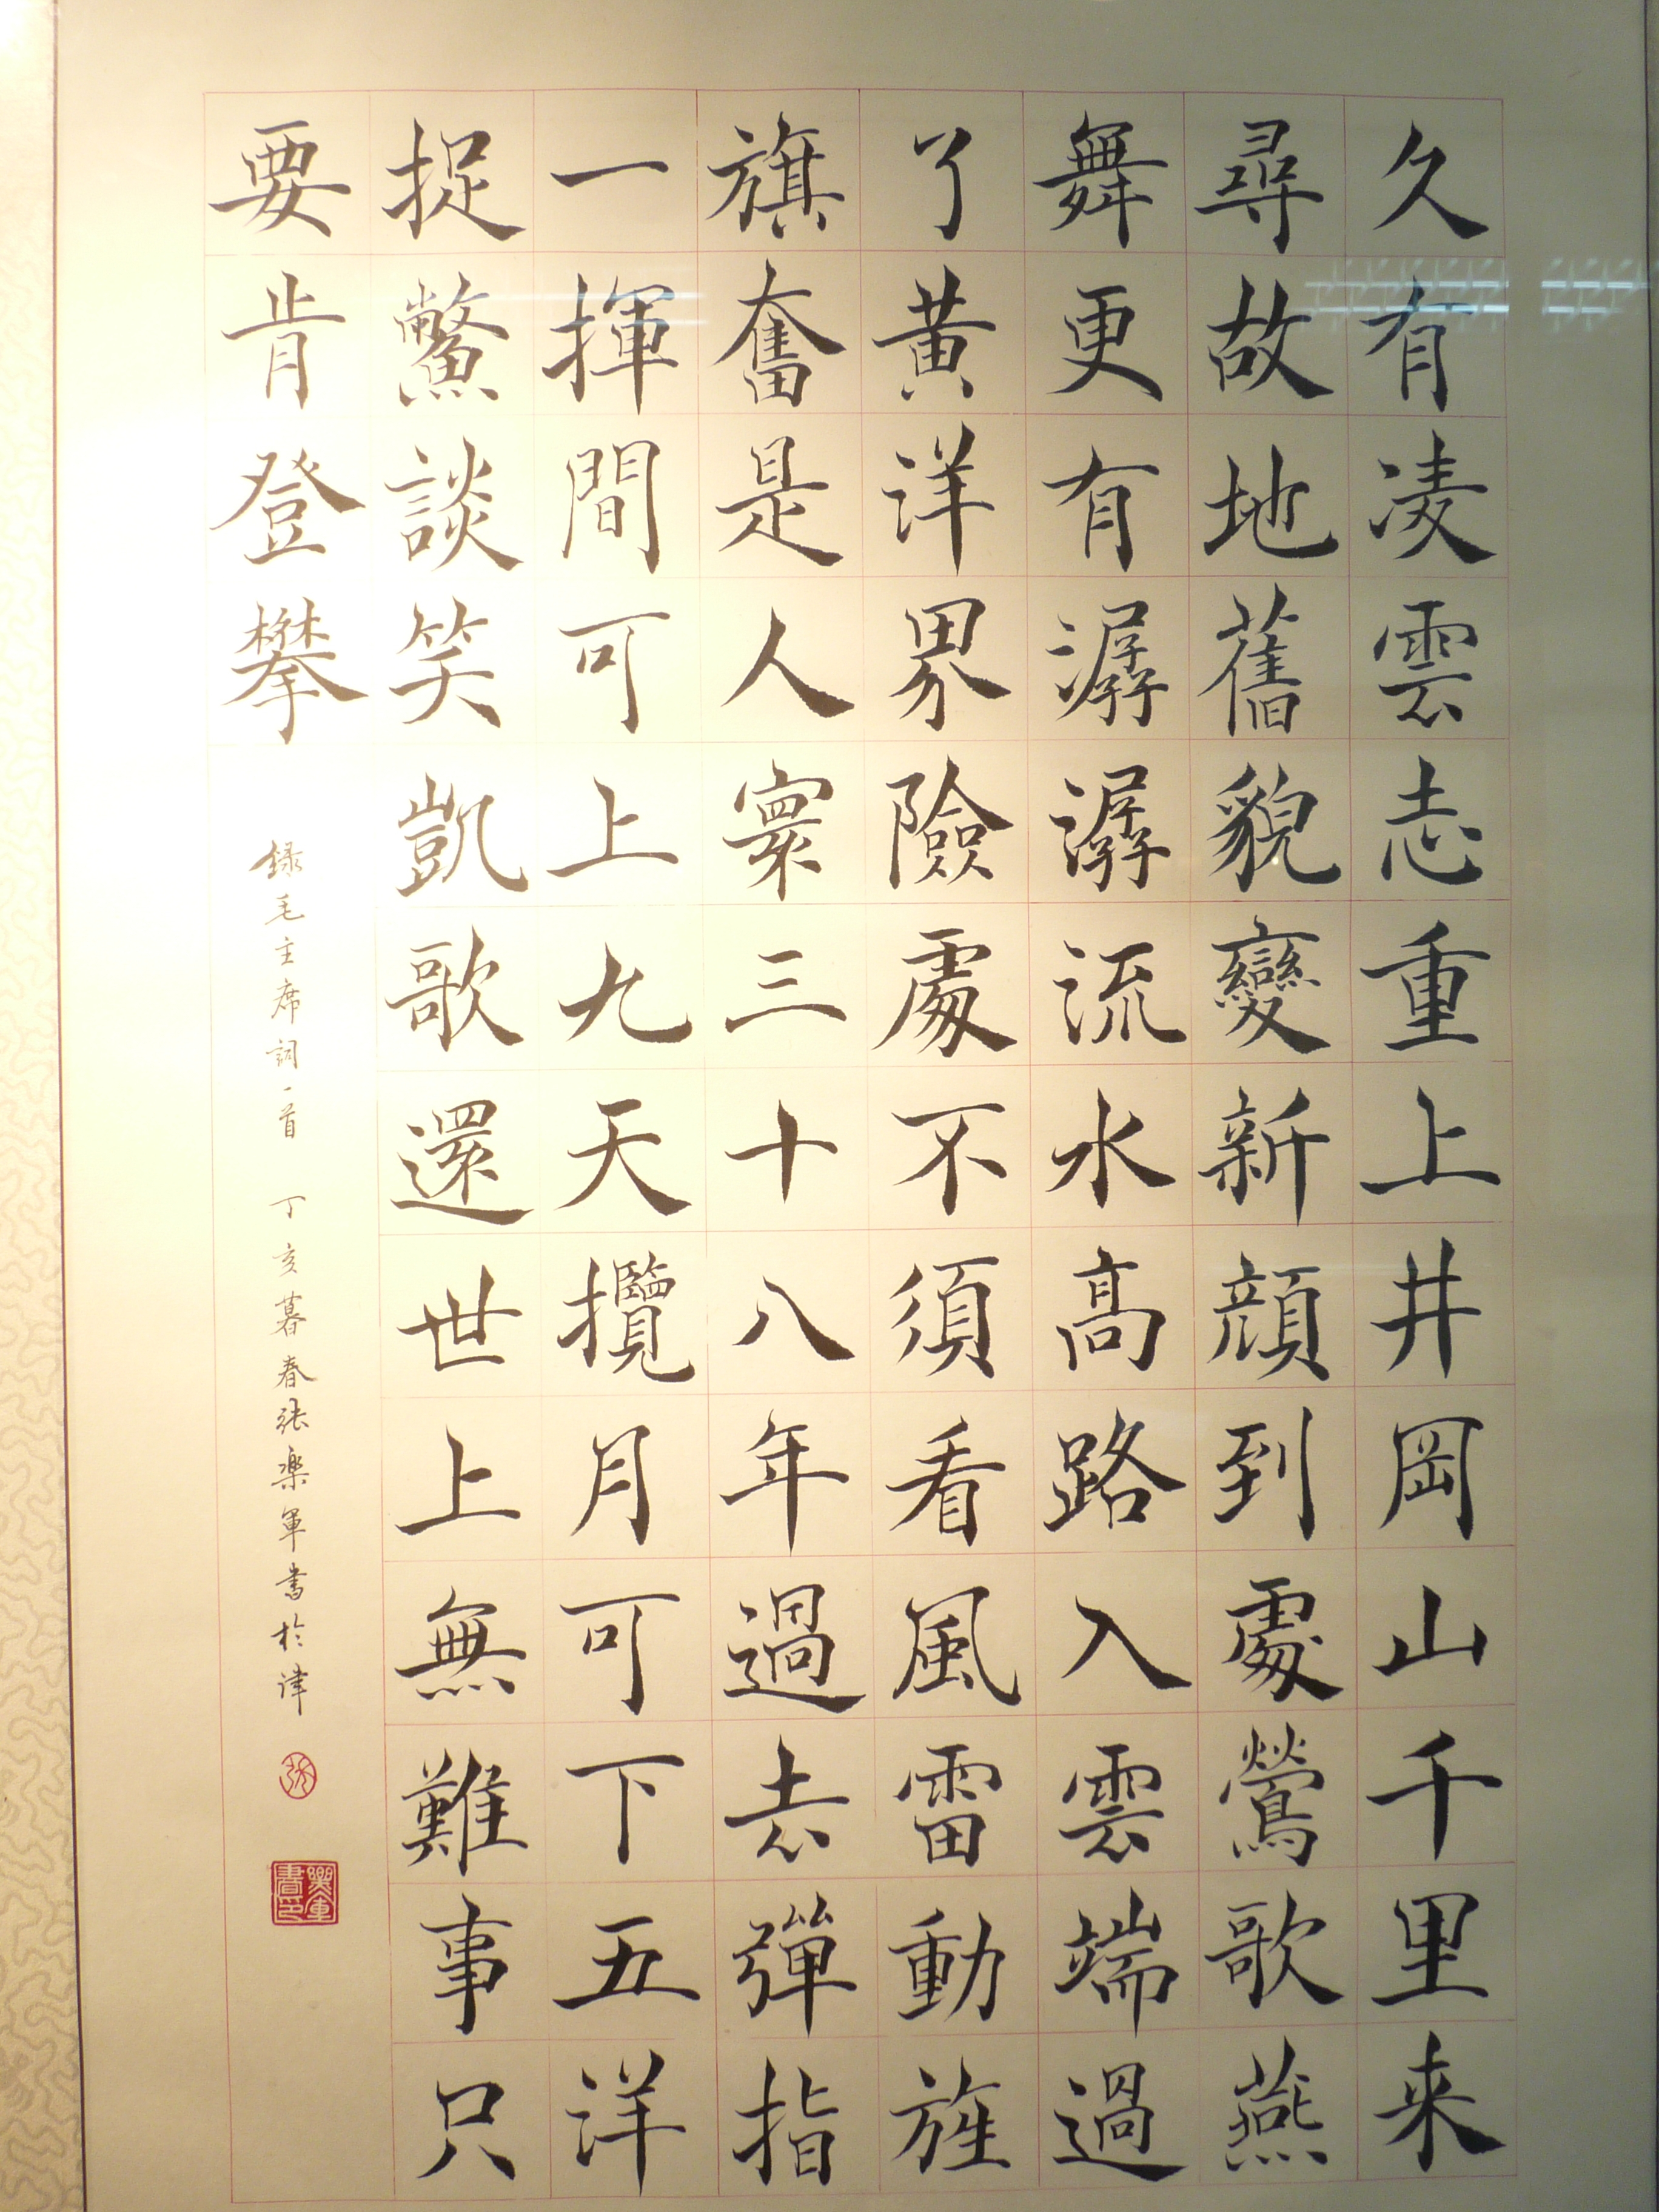 久有凌雲志重上井岡山千里来
尋故地舊貌變新顔到處鶯歌燕
舞更有潺潺流水高路入雲端過
了黃洋界險處不須看風雷動旌
旗奮是人寰三十八年過去彈指
一揮間可上九天攬月可下五洋
捉鱉談笑凱歌還世上無難事只
要肯登攀
録毛主席詞一首 丁亥暮春张樂軍書於津